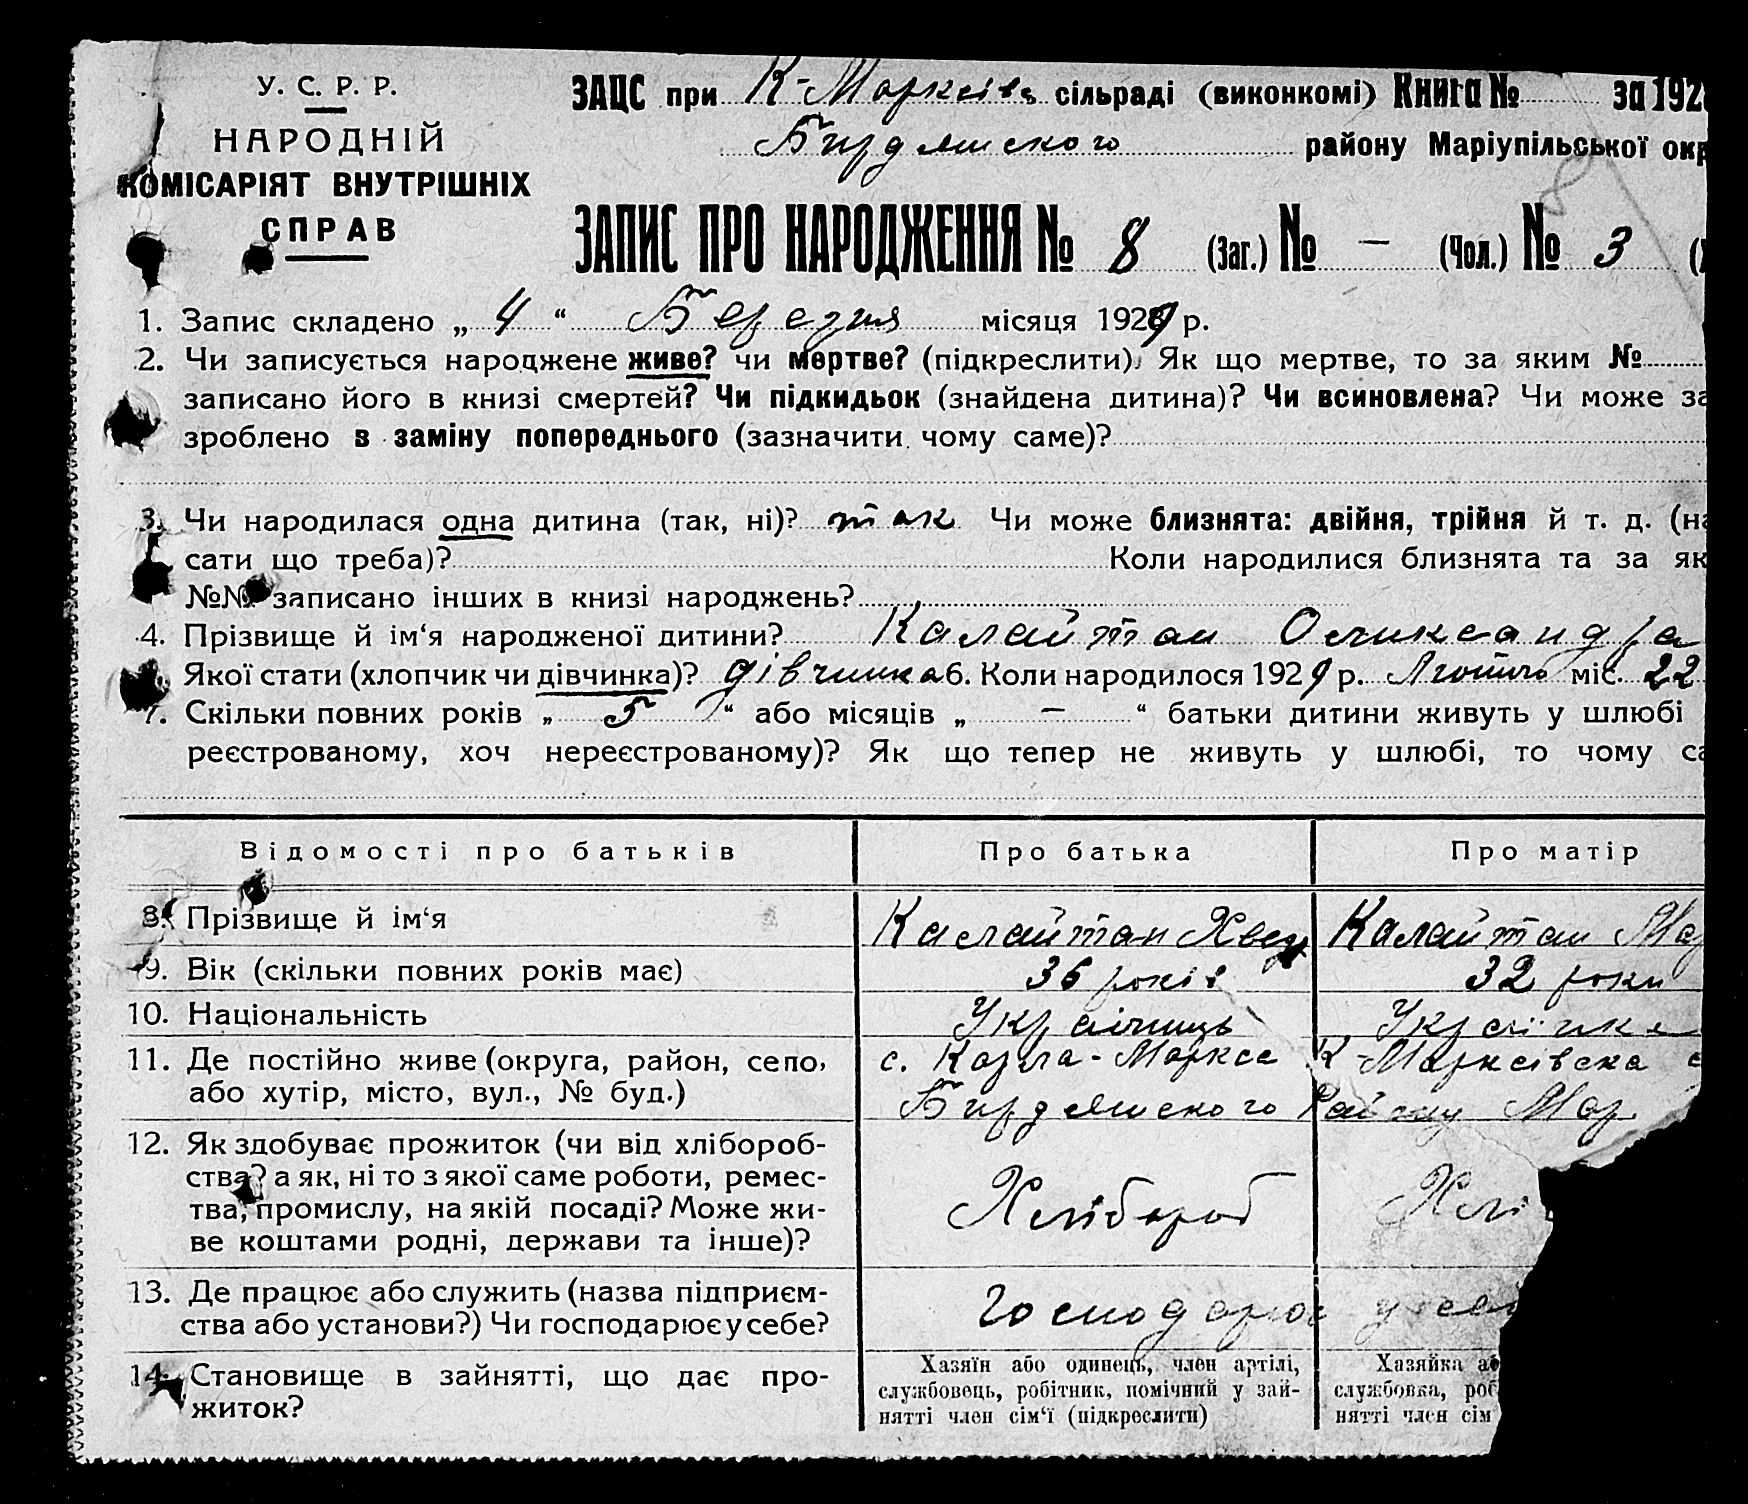 У. С. Р. Р.
НАРОДНІЙ
КОМІСАРІЯТ ВНУТРІШНІХ
СПРАВ
ЗАЦС при К-Марксівс сільраді (виконкомі) Книга № за 192
Бирдянського району Маріупільської окр
ЗАПИС ПРО НАРОДЖЕННЯ № 8 (Заг.) № — (Чол.) № 3
8
1. Запис складено „ 4 “ Березня місяця 1929 р.
2. Чи записується народжене живе? чи мертве? (підкреслити). Як що мертве, то за яким №
записано його в книзі смертей? Чи підкидьок (знайдена дитина)? Чи всиновлена? Чи може за
зроблено в заміну попереднього (зазначити чому саме)?
3. Чи народилася одна дитина (так, ні)? так Чи може близнята: двійня, трійня й т. д. (на
сати що треба)? Коли народилися близнята та за як
№№ записано інших в книзі народжень?
4. Прізвище й ім‘я народженої дитини? Калайтан Оликсандра
Якої стати (хлопчик чи дівчинка)? дівчинка 6. Коли народилося 1929 р. Лютого міс. 22
7. Скільки повних років „ 5 “ або місяців „ — “ батьки дитини живуть у шлюбі
реєстрованому, хоч нереєстрованому)? Як що тепер не живуть у шлюбі, то чому са
Відомості про батьків Про батька Про матір
8. Прізвище й ім‘я Калайтан Хвед Калайтан Мар
9. Вік (скільки повних років має) 36 років 32 роки
10. Національність Українць Українка
11. Де постійно живе (округа, район, село, с. Карла-Маркса К-Марксівска с
або хутір, місто, вул., № буд.) Бирдянского Району Мар.
12. Як здобуває прожиток (чи від хлібороб-
ства? а як, ні то з якої саме роботи, ремес-
тва, промислу, на якій посаді? Може жи- Хлібороб Хлі
ве коштами родні, держави та інше)?
13. Де працює або служить (назва підприєм-
ства або установи?) Чи господарює у себе? Господарює у себ
14. Становище в зайнятті, що дає про-
житок?
Хазяїн або одинець, член артілі,
службовець, робітник, помічний у зай-
нятті член сім‘ї (підкреслити)
Хазяйка аб
службовка, роб
нятті член сім